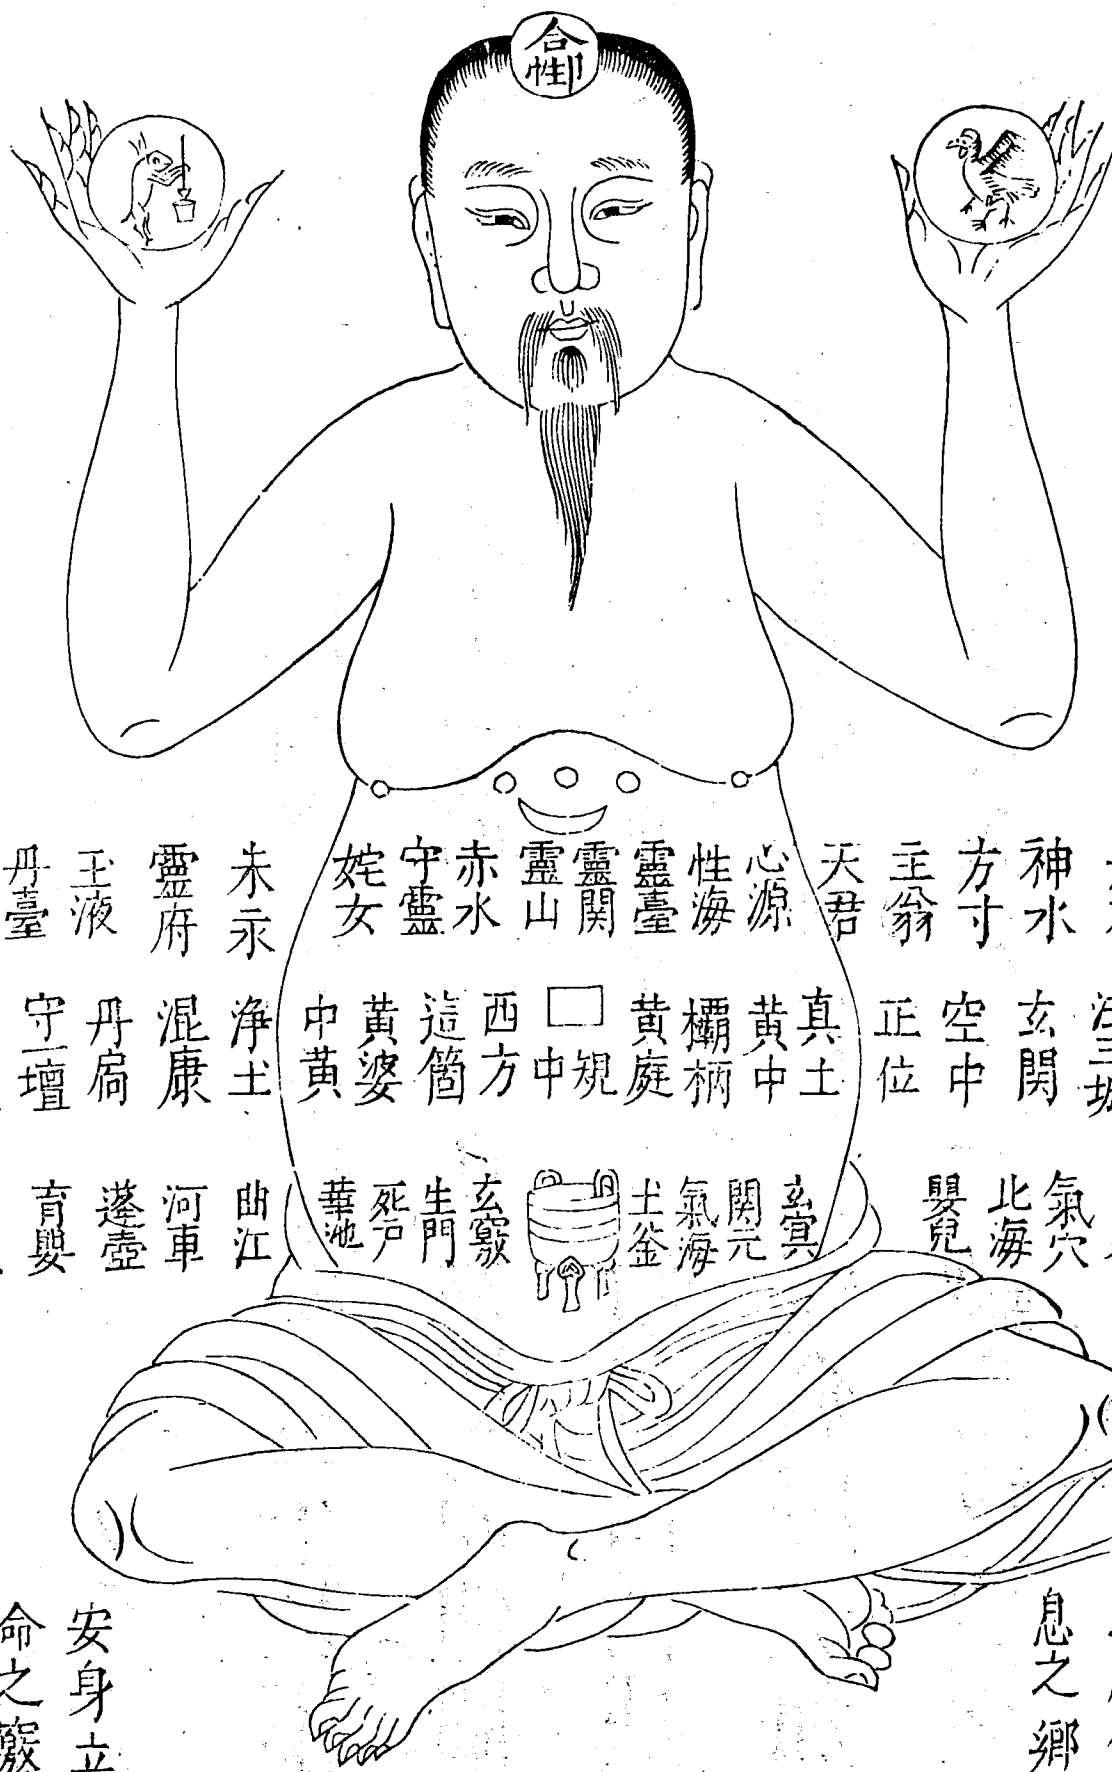 合性卩
神水
方寸
主翁
天君
心源
性海
靈臺
靈関
靈山
赤水
守靈
姹女
朱汞
靈府
玉液
丹臺
玄関
空中
正位
真土
黄中
欛柄
黄庭
規
中
西方
這箇
黄婆
中黄
淨土
混康
丹扃
守一壇
氣穴
北海
嬰兒
玄冥
関元
氣海
土釜
玄竅
生門
死户
華池
曲江
河車
蓬壺
育嬰
息之鄉
安身立
命之竅